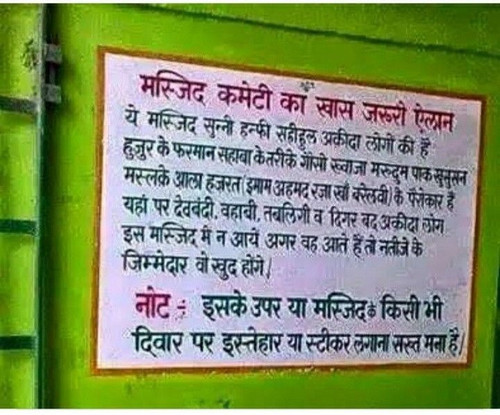 मस्जिद कमेटी का खास जरूरी ऐलान
ये मस्जिद सुन्नी हन्फी सहीहुल अक़ीदा लोगों की है
हुजुर के फरमान सहाबा के तरीके गौसो ख्वाजा मख्दुम पाक खुसुसन
मस्लके आला हजरत (इमाम अहमद रजा खाँ बरेलवी) के पैरोकार है
यहां पर देवबंदी, वहाबी, तबलिगी व दिगर बद अक़ीदा लोग
इस मस्जिद में न आयें अगर वह आते हैं तो नतीजे के
जिम्मेदार वो खुद होंगे।
नोट : इसके उपर या मस्जिद के किसी भी
दिवार पर इस्तेहार या स्टीकर लगाना सख्त मना है।